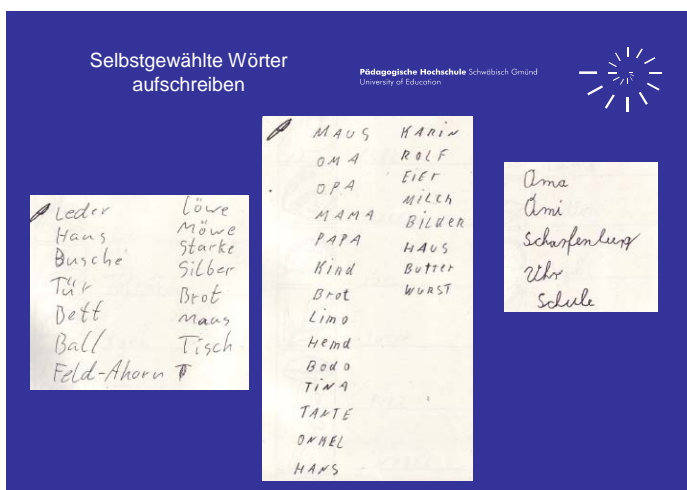 Selbstgewählte Wörter
aufschreiben
Pädagogische Hochschule Schwäbisch Gmünd
University of Education
Leder
Haus
Busche
Tür
Bett
Ball
Feld-Ahorn T
Löwe
Möwe
Starke
Silber
Brot
Maus
Tisch
MAUS
OMA
OPA
MAMA
PAPA
Kind
Brot
Limo
Hemd
Bodo
TiNA
TANTE
ONKEL
HANS
KARiN
ROLF
EiEr
MiLCh
BiLdEN
HAUS
Butter
WURST
Oma
Omi
Scharfenburg
Uhr
Schule